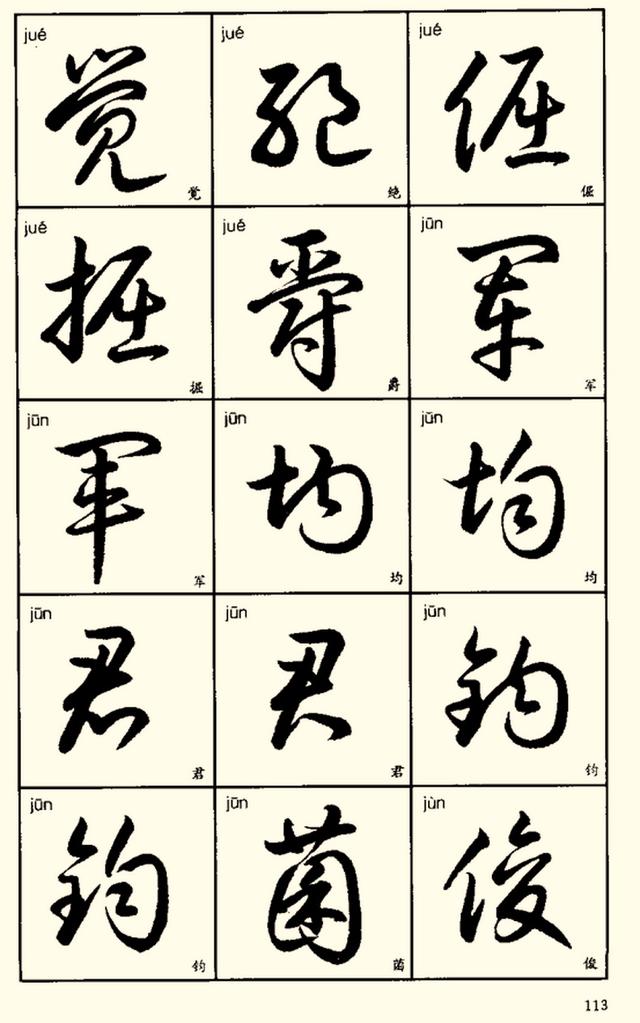 jué jué jué
觉 绝 倔
觉 绝 倔
jué jué jūn
掘 爵 军
掘 爵 军
jūn jūn jūn
军 均 均
军 均 均
jūn jūn jūn
君 君 钧
君 君 钧
jūn jūn jùn
钧 菌 俊
钧 菌 俊
113